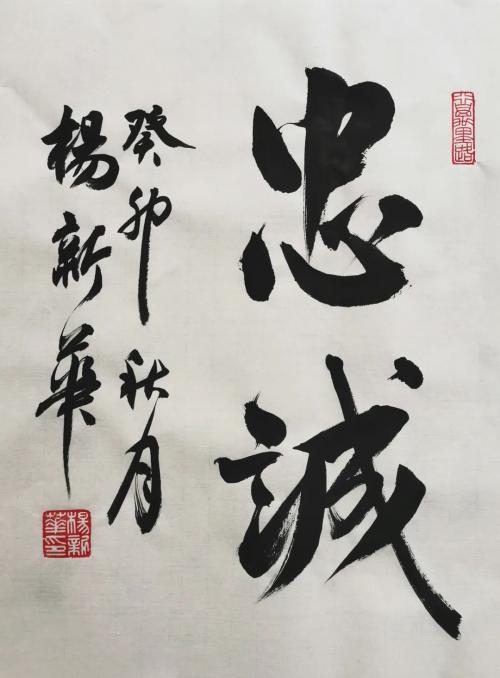 忠誠
癸卯秋月
楊新華
楊新華印